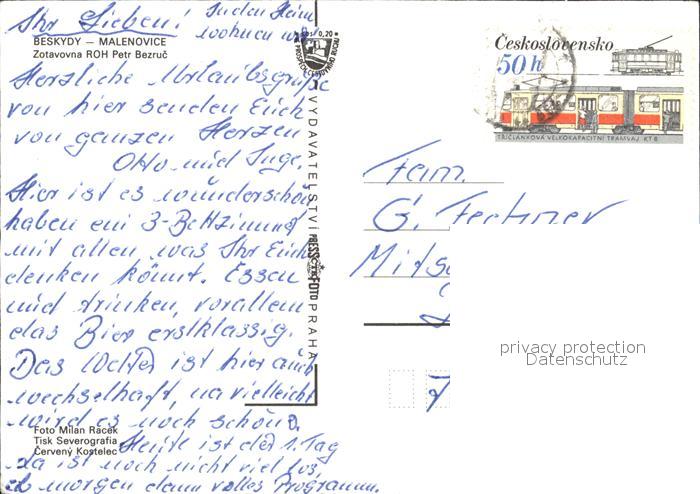 In den Heim
wohnen wir
Ihr Lieben!
BESKYDY — MALENOVICE
Zotavovna ROH Petr Bezruč
Herzliche Urlaubsgrüße
von hier senden Euch
von ganzen Herzen
Otto und Inge.
Hier ist es wunderschön
haben ein 3-Bettzimmer
mit allen was Ihr Euch
denken könnt. Essen
und trinken, vorallem
das Bier erstklassig.
Das Wetter ist hier auch
wechselhaft, na vielleicht
wird es noch schön.
Heute ist der 1. Tag
da ist noch nicht viel los,
ab morgen dann volles Programm.
Foto Milan Racek
Tisk Severografia
Červený Kostelec
Kčs 0,20
VYDAVATELSTVÍ PRESSFOTO PRAHA
Československo
50 h
TŘÍČLÁNKOVÁ VELKOKAPACITNÍ TRAMVAJ KT 8
Fam.
G. Fechner
privacy protection
Datenschutz